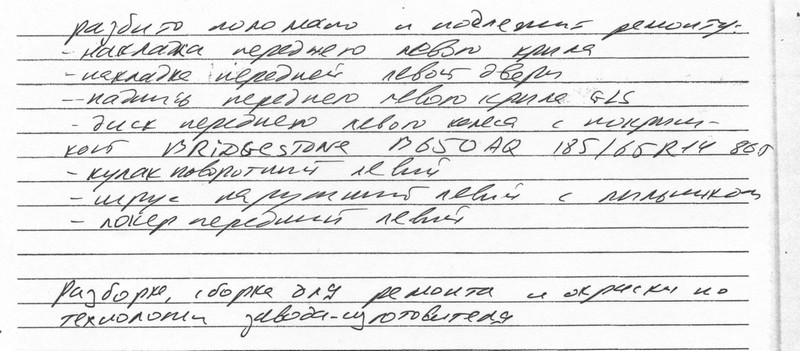 разбито поломано и подлежит ремонту:
- накладка переднего левого крыла
- накладка передней левой двери
- надпись переднего левого крыла GLS
- диск переднего левого колеса с покрыш-
кой BRiDGESTONE B650AQ 185/65R14 86T
- кулак поворотный левый
- шрус наружный левый с пыльником
- локер передний левый
Разборка, сборка для ремонта и окраски по
технологии завода-изготовителя